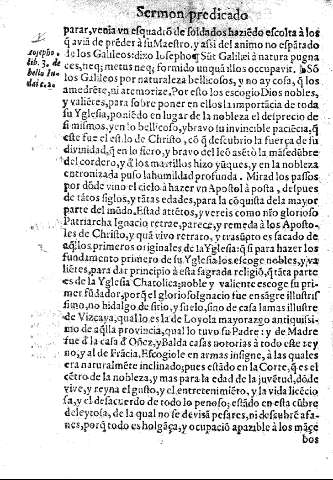 Sermon predicado
parar, venia vn esquadrõ de soldados haziẽdo escolta à los
q̃ auiã de prẽder à su Maestro, y assi del animo no espãtado
Iosepho
lib. 3. de
bello Iu
dai c. 2.
de los Galileos: dixo Iosepho; Sũt Galilæi à natura pugna
ces, neq; metus neq; formido vnquã illos occupauit. Sõ
los Galileos por naturaleza bellicosos, y no ay cosa, q̃ los
amedrẽte, ni atemorize. Por esto los escogio Dios nobles,
y valiẽtes, para sobre poner en ellos la importãcia de toda
su Yglesia, poniẽdo en lugar de la nobleza el desprecio de
si mismos, y en lo bellicoso, y brauo su inuincible paciẽcia, q̃
este fue el estilo de Christo, cõ q̃ descubrio la fuerça de su
diuinidad, q̃ en lo fiero, y brauo del leõ asẽto la mãsedũbre
del cordero, y d̃ los martillos hizo yũques, y en la nobleza
entronizada puso la humildad profunda. Mirad los passos
por dõde vino el cielo à hazer vn Apostol à posta, despues
de tãtos siglos, y tãtas edades, para la cõquista de la mayor
parte del mũdo. Estad attẽtos, y vereis como nr̃o glorioso
Patriarcha Ignacio retrae, parece, y remeda à los Aposto-
les de Christo, y quã viuo retrato, y trasũpto es sacado de
aq̃llos primeros originales de la Yglesia: q̃ si para hazer los
fundamento primero de su Yglesia los escoge nobles, y va
liẽtes, para dar principio à esta sagrada religiõ, q̃ tãta parte
es de la Yglesia Chatolica; noble y valiente escoge su pri-
mer fũdador, porq̃ el glorioso Ignacio fue en sãgre illustris
simo, no hidalgo de sitio, y suelo, sino de casa la mas illustre
de Vizcaya, qual lo es la de Loyola mayorazgo antiquissi-
mo de aq̃lla prouincia, qual lo tuuo su Padre: y de Madre
fue d̃ la casa d̃ Oñez, y Balda casas notorias à todo este rey
no, y al de Frãcia. Escogiole en armas insigne, à las quales
era naturalmẽte inclinado; pues estãdo en la Corte, q̃ es el
cẽtro de la nobleza, y mas para la edad de la juuẽtud, dõde
viue, y reyna el gusto, y el entretenimiẽto, y la vida licẽcio
sa, y el desacuerdo de todo lo penoso: estãdo en esta cũbre
deleytosa, de la qual no se deuisã pesares, ni descubrẽ afa-
nes, porq̃ todo es holgãça, y ocupaciõ apazible à los mãce
bos